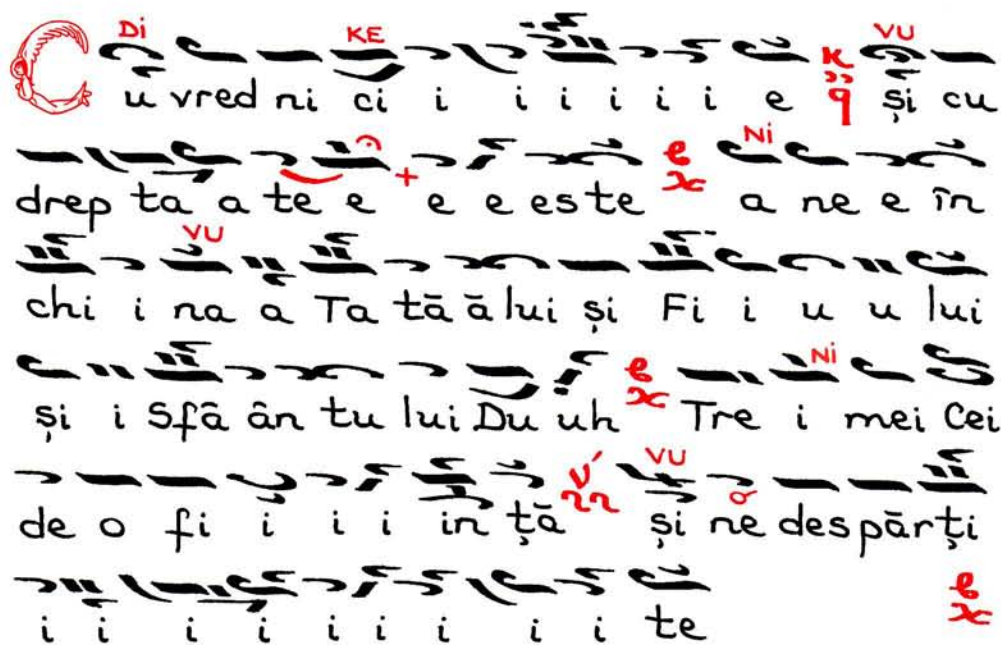 Di KE VU
Cu vred ni ci i i i i i i e și cu
NI
drep ta a te e e e es te a ne e în
VU
chi i na a Ta tă ă lui și Fi i u u lui
NI
și i Sfâ ân tu lui Du uh Tre i mei Cei
VU
de o fi i i i in ță și ne des păr ți
i i i i i i i i i te